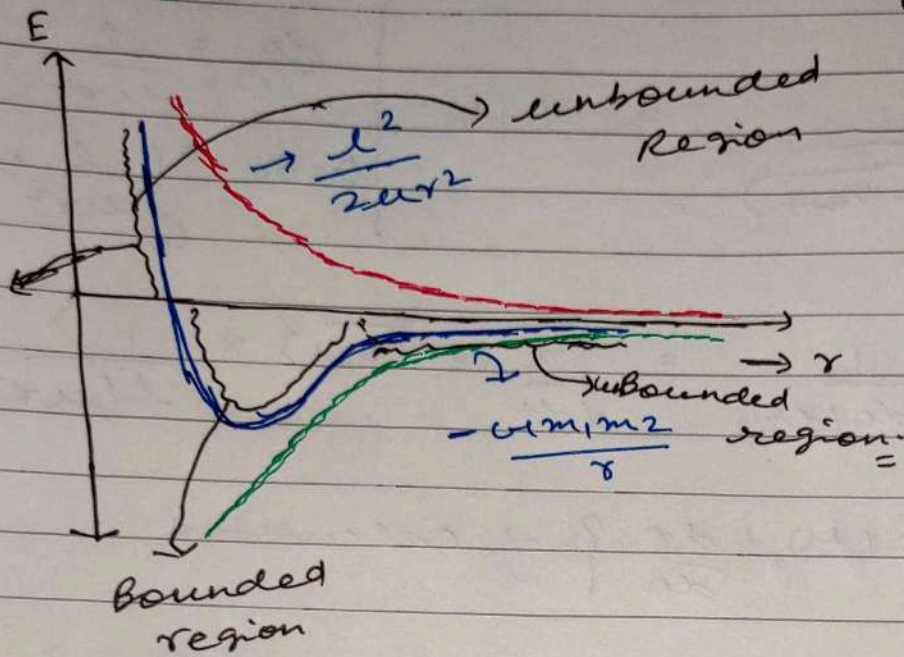 E
unbounded
Region
→ l²
2μr²
→ r
unbounded
region
- Gm₁m₂
r
Bounded
region